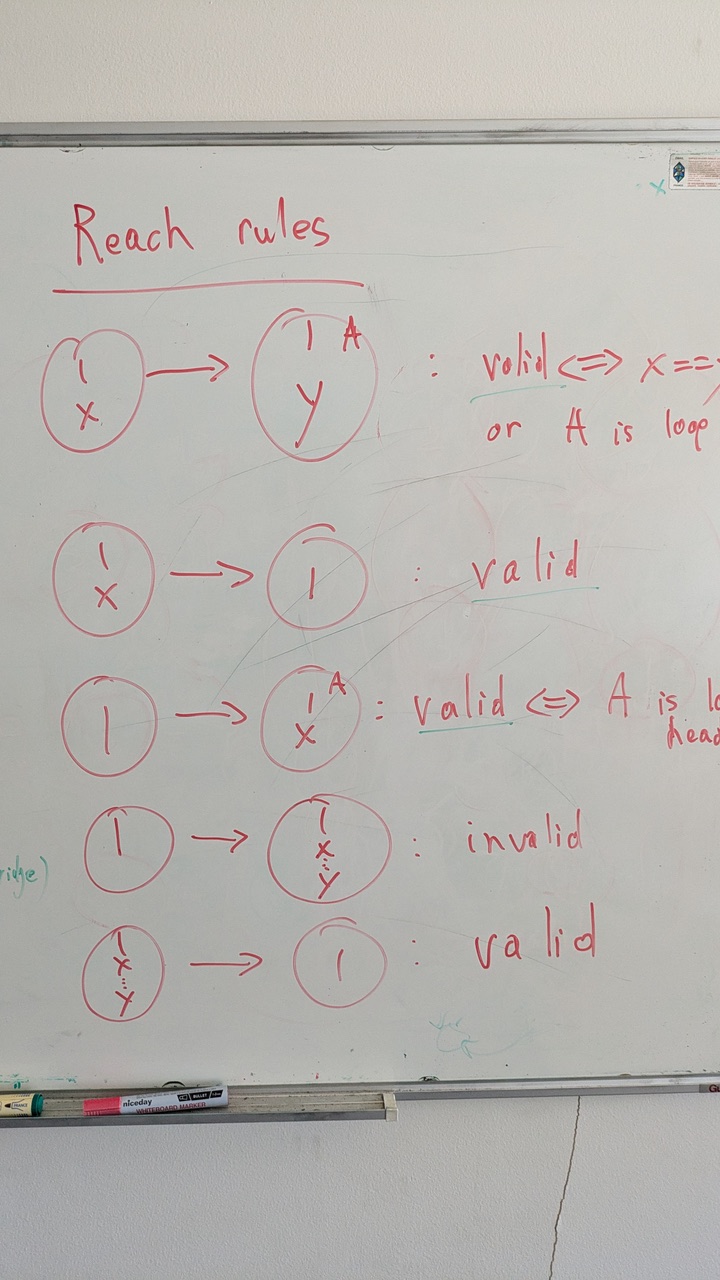 Reach rules
1 x → 1 A y : valid <=> x ==
or A is loop
1 x → 1 : valid
1 → 1 A x : valid <=> A is
head
1 → 1 x ... y : invalid
1 x ... y → 1 : valid
niceday
WHITEBOARD MARKER
BULLET